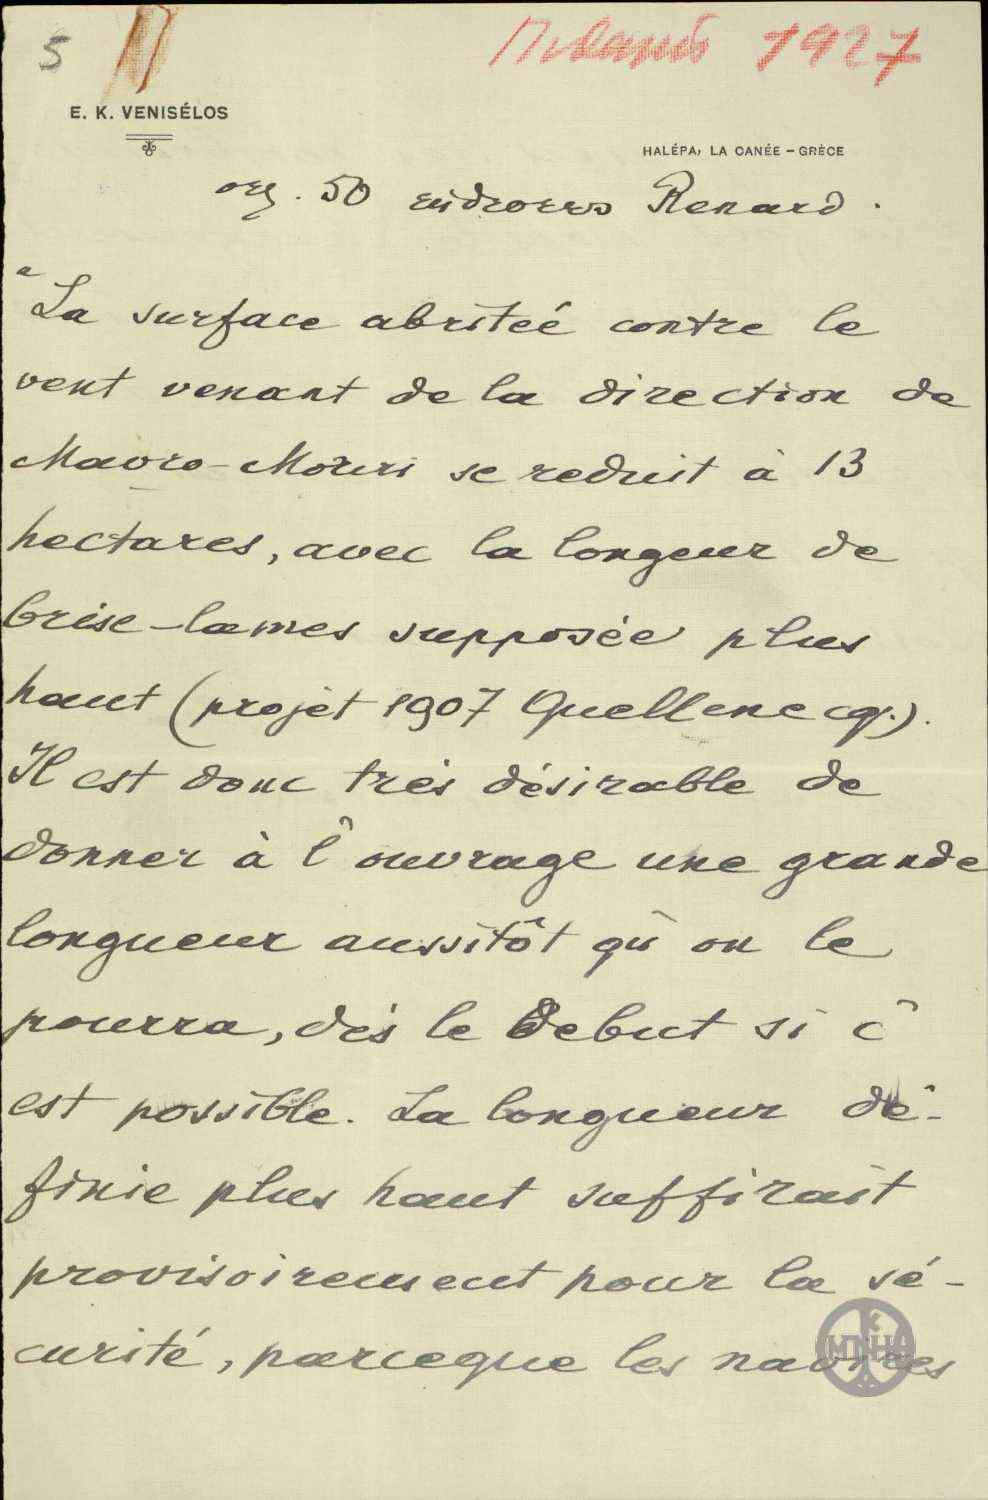 5
Πιθανώς 1927
E. K. VENISÉLOS
HALÉPA, LA CANÉE – GRÈCE
σελ. 50 εκθέσεως Renard.
"La surface abriteé contre le
vent venant de la direction de
Mavro-Mouri se reduit à 13
hectares, avec la longeur de
brise-lames supposée plus
haut (projèt 1907 Quellenecq.).
Il est donc très désirable de
donner à l'ouvrage une grande
longueur aussitôt qu'on le
pourra, dès le debut si c'
est possible. La longueur dé-
finie plus haut suffirait
provisoirement pour la sé-
curité, parceque les navires